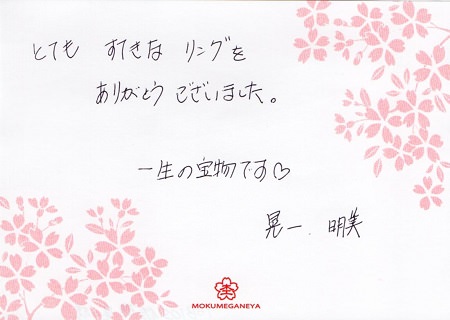 とても すてきな リングを
ありがとう ございました。
一生の宝物です♡
晃一. 明美
MOKUMEGANEYA